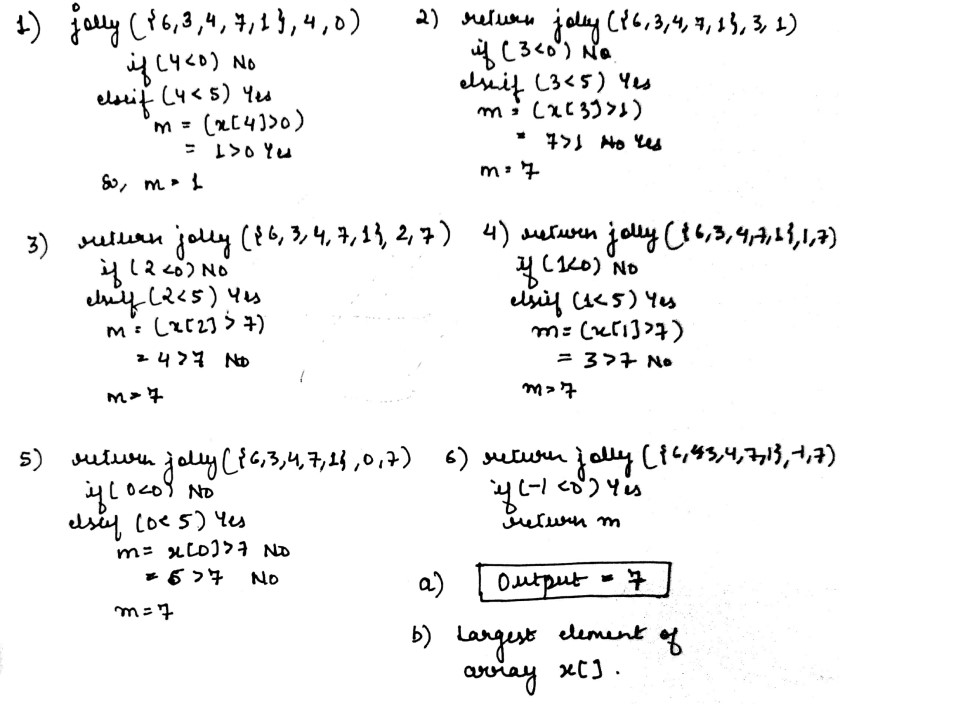 1) jolly ({6,3,4,7,1},4,0)
if (4<0) No
elseif (4<5) Yes
m = (x[4]>0)
= 1>0 Yes
So, m = 1
2) return jolly ({6,3,4,7,1},3,1)
if (3<0) No
elseif (3<5) Yes
m = (x[3]>1)
= 7>1 Yes
m = 7
3) return jolly ({6,3,4,7,1},2,7)
if (2<0) No
elseif (2<5) Yes
m = (x[2]>7)
= 4>7 No
m = 7
4) return jolly ({6,3,4,7,1},1,7)
if (1<0) No
elseif (1<5) Yes
m = (x[1]>7)
= 3>7 No
m = 7
5) return jolly ({6,3,4,7,1},0,7)
if (0<0) No
elseif (0<5) Yes
m = x[0]>7 No
= 6>7 No
m = 7
6) return jolly ({6,3,4,7,1},-1,7)
if (-1<0) Yes
return m
a) Output = 7
b) Largest element of
array x[].